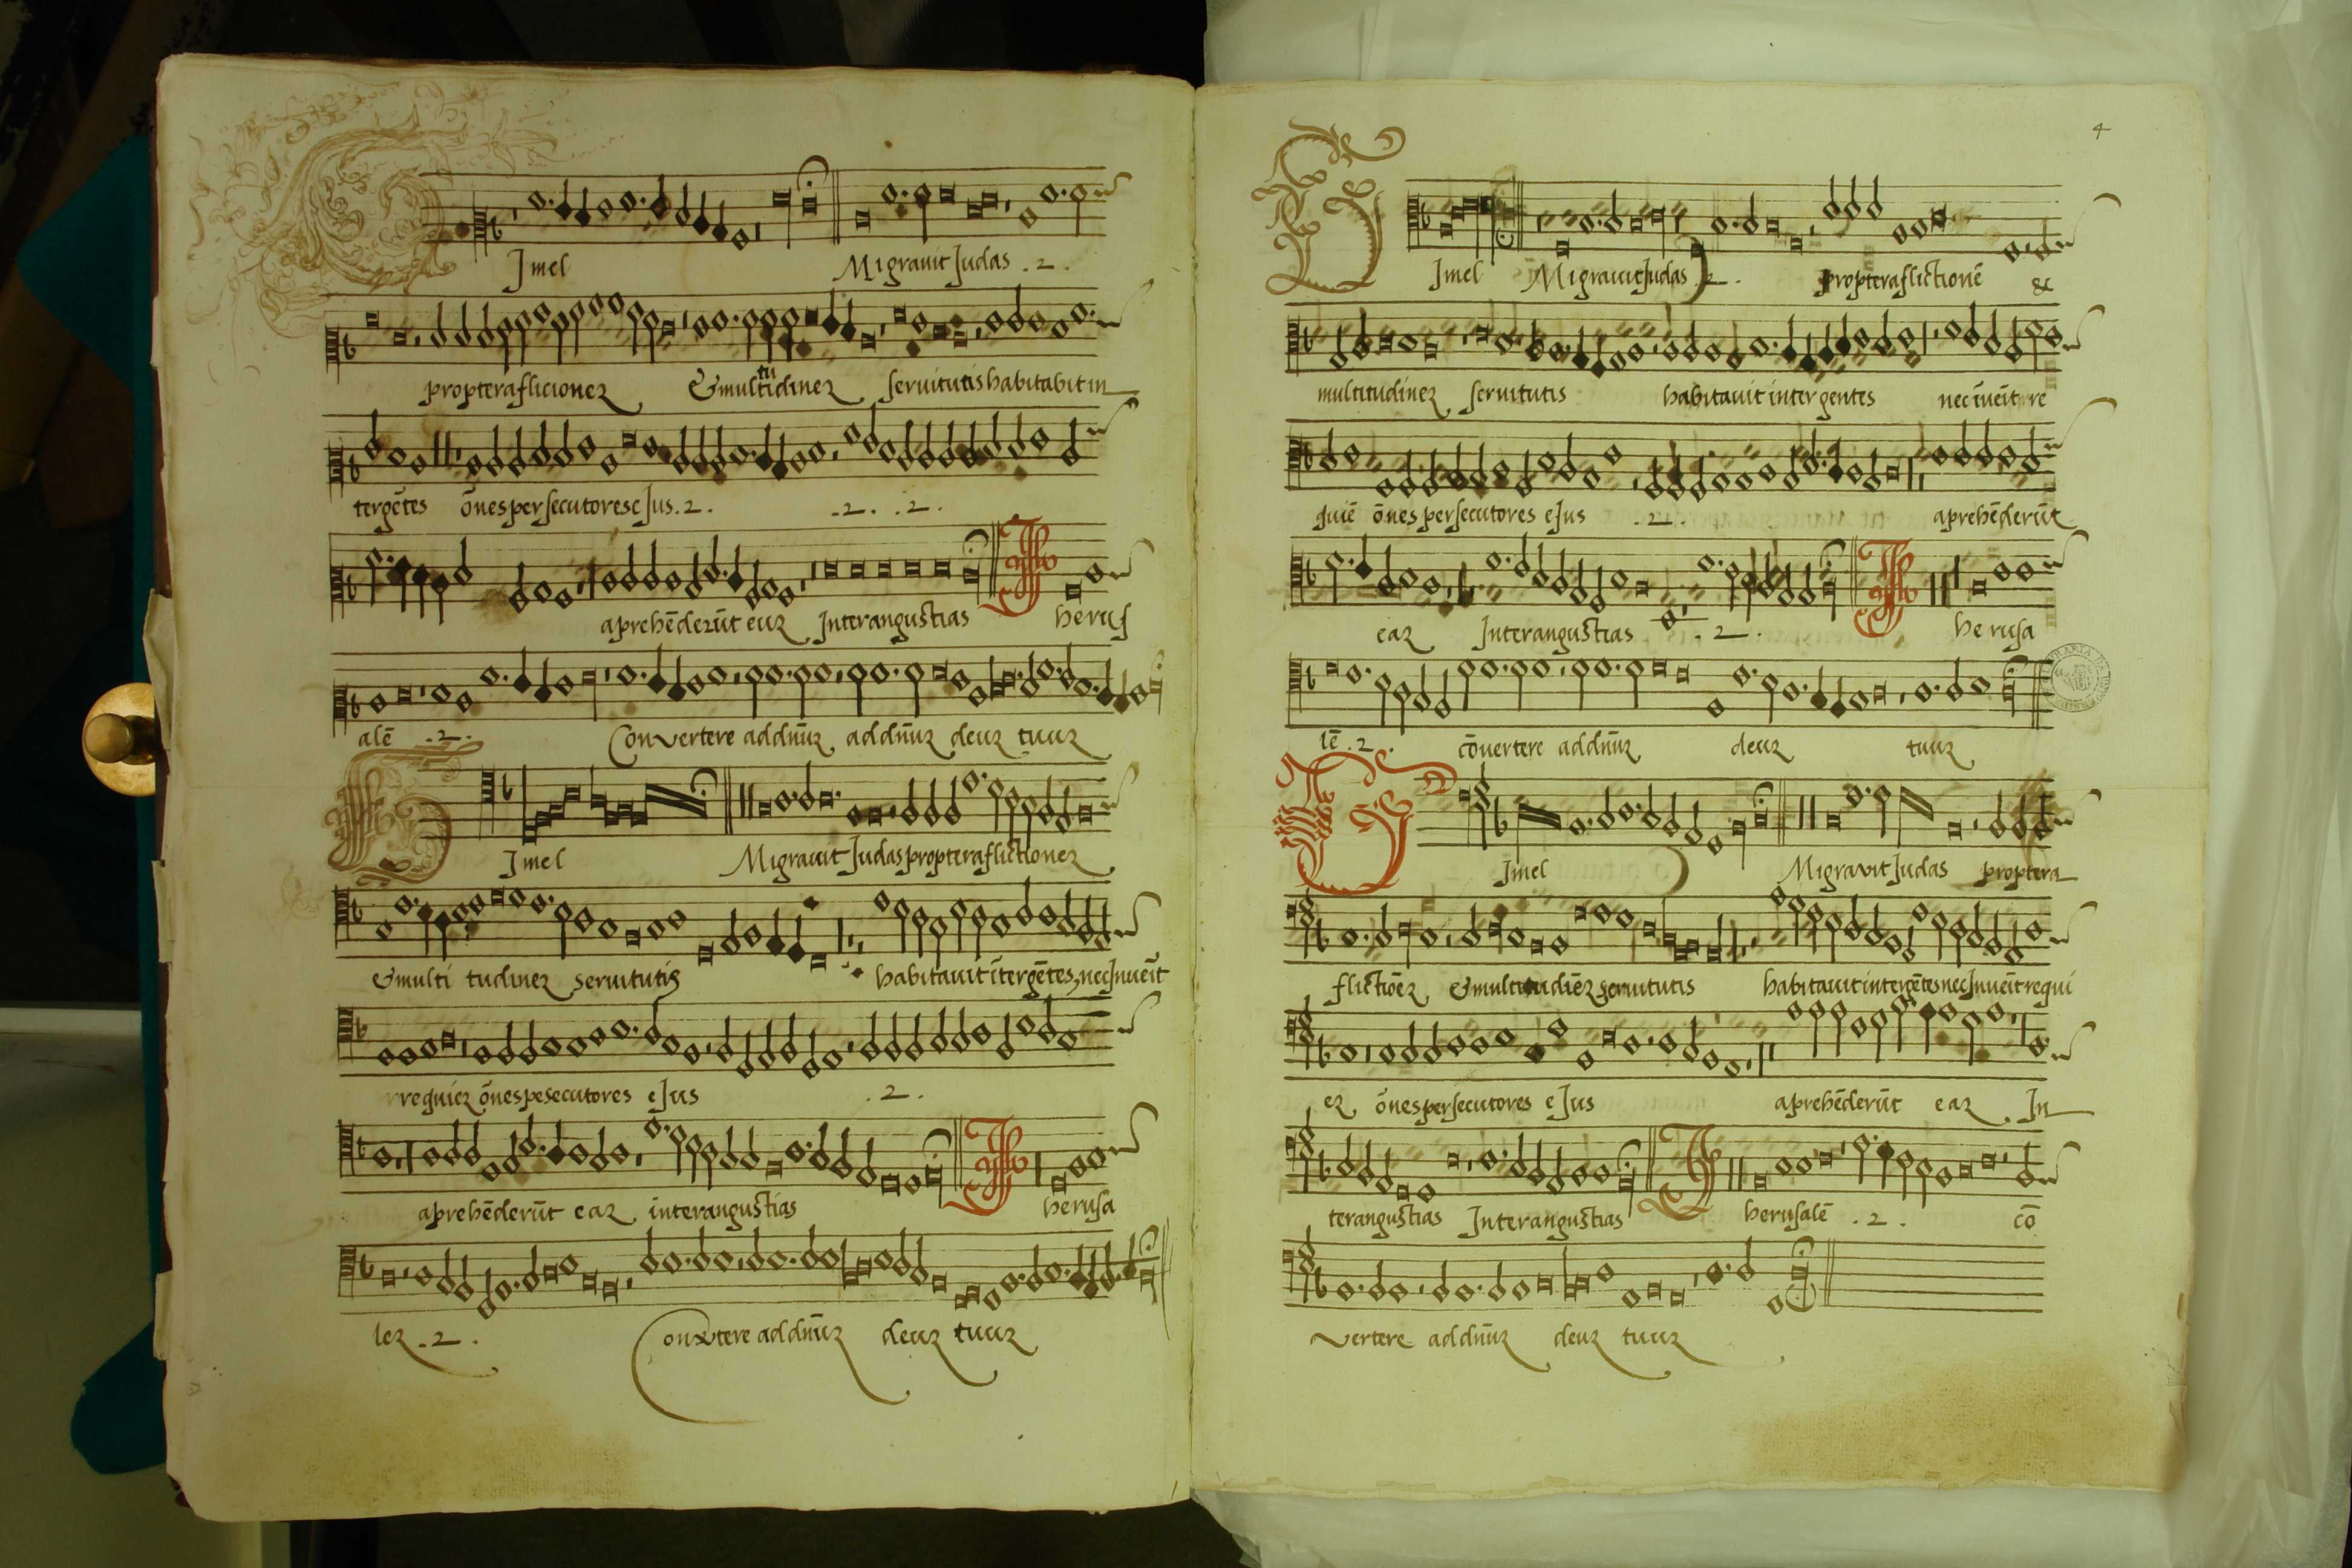 G Jmel Migravit Judas .2.
propter aflicionez & multitudinez servitutis habitabit in
tergētes ōnes persecutores eJus .2. .2. .2.
aprehēderūt euz Jnter angustias Jherus
alē .2. Convertere ad dnūz ad dnūz deuz tuuz
G Jmel Migravit Judas propter aflictionez
& multi tudinez servitutis habitavit ītergētes, nec Jnveīt
requiez ōnes pesecutores eJus .2.
aprehēderūt eaz inter angustias Jherusa
lez .2. Convertere ad dnūz deuz tuuz
4
G Jmel Migravit Judas .2. propter aflictionē &
multitudinez servitutis habitavit inter gentes nec īveīt re
quiē ōnes persecutores eJus .2. aprehēderūt
eaz Jnter angustias .2. Jherusa
lē .2. cōvertere ad dnūz deuz tuuz
G Jmel Migravit Judas propter a
flictiōez & multitudiēz servitutis habitavit inter gētes nec Jnveīt requi
ez ōnes persecutores eJus aprehēderūt eaz Jn
ter angustias Jnter angustias Jherusalē .2. cō
vertere ad dnūz deuz tuuz